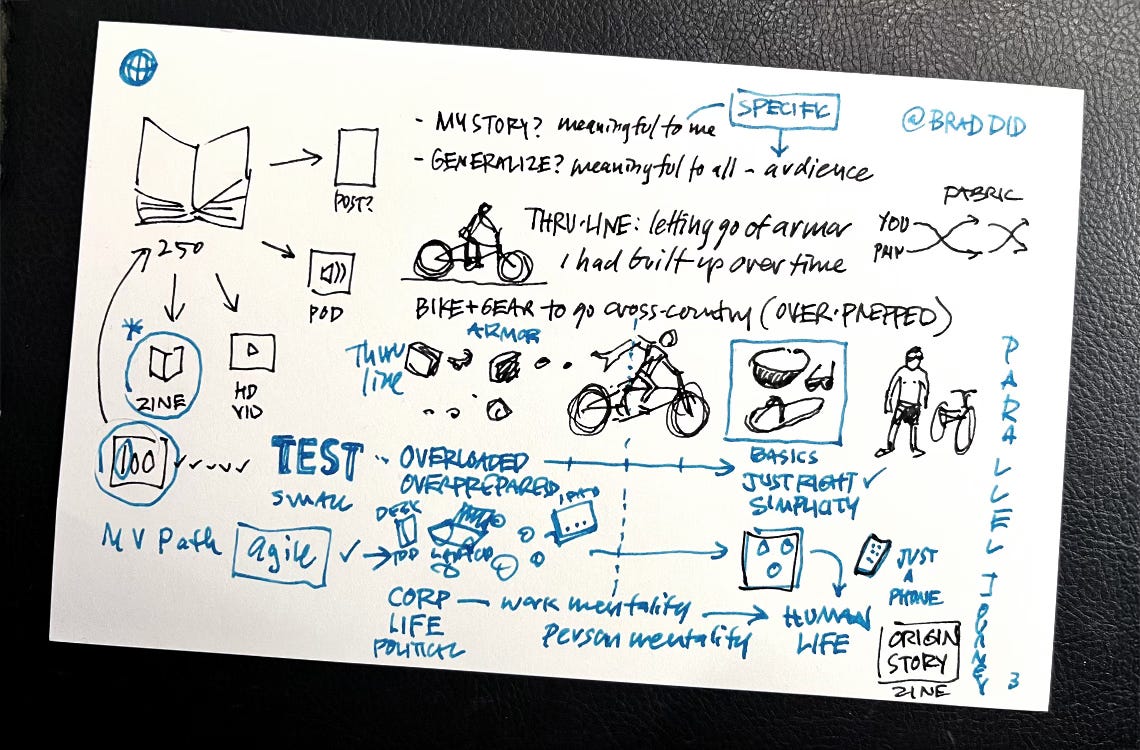 SPECIFIC
@BRADDID
- MY STORY? meaningful to me
- GENERALIZE? meaningful to all - audience
POST?
FABRIC
YOU
THRU-LINE: letting go of armor
I had built up over time
250
POD
BIKE+GEAR to go cross-country (OVER-PREPPED)
ARMOR
THRU
line
*
ZINE
HD
VID
100
TEST
SMALL
OVERLOADED
OVERPREPARED
BASICS
JUST RIGHT ✓
SIMPLICITY
MV Path
agile
DESK
IPAD
JUST
A
PHONE
CORP
LIFE
POLITICAL
work mentality
Person mentality
HUMAN
LIFE
ORIGIN
STORY
ZINE
PARALLEL JOURNEY
3